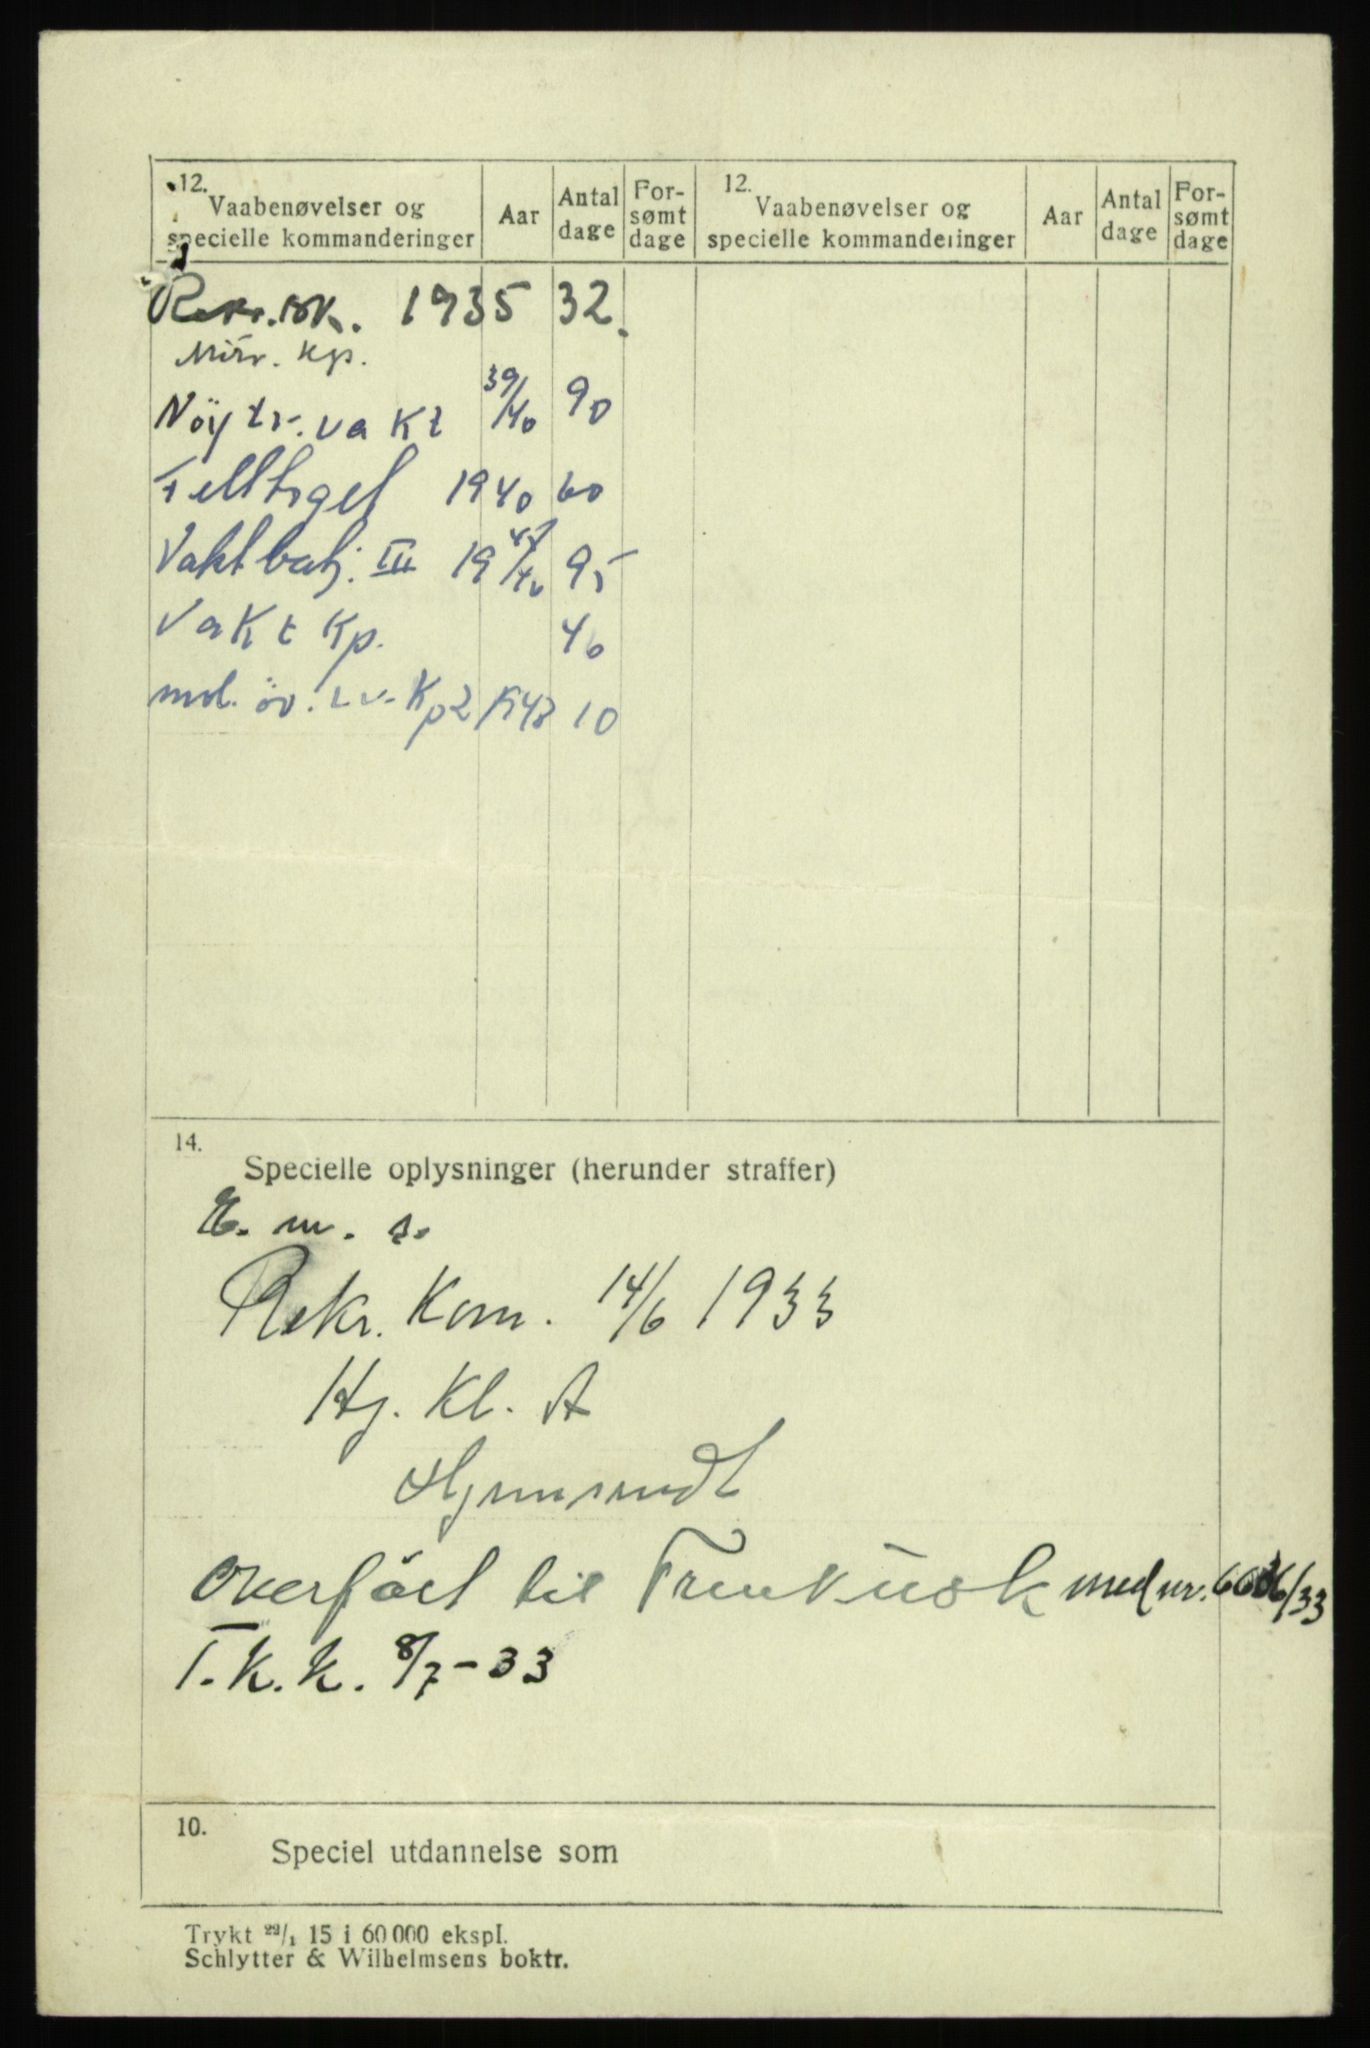 12.
Vaabenøvelser og
specielle kommanderinger
Aar
Antal
dage
For-
sømt
dage
12.
Vaabenøvelser og
specielle kommanderinger
Aar
Antal
dage
For-
sømt
dage
Rekr.sk. 1935 32.
Kp.
Nöytr.vakt 39/40 90
Felttoget 1940 60
Vaktbatj. III 19 /46 95
Vakt Kp. 46
md. öv. Lv. Kp 2 1948 10
14.
Specielle oplysninger (herunder straffer)
E. m. s.
Rekr. Kom. 14/6 1933
Hj. Kl. A
Overfört til Trenkusk med nr. /33
T.K.K. 8/7-33
10.
Speciel utdannelse som
Trykt 22/1 15 i 60 000 ekspl.
Schlytter & Wilhelmsens boktr.